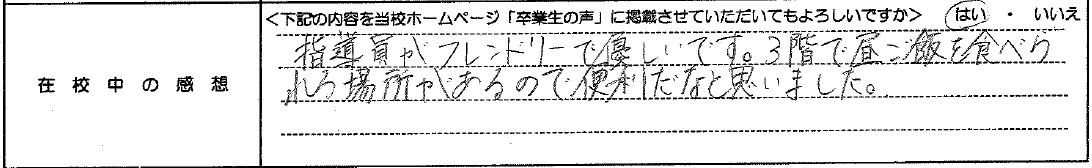 <下記の内容を当校ホームページ「卒業生の声」に掲載させていただいてもよろしいですか> はい ・ いいえ
在校中の感想
指導員がフレンドリーで優しいです。3階で昼ご飯を食べら
れる場所があるので便利だなと思いました。